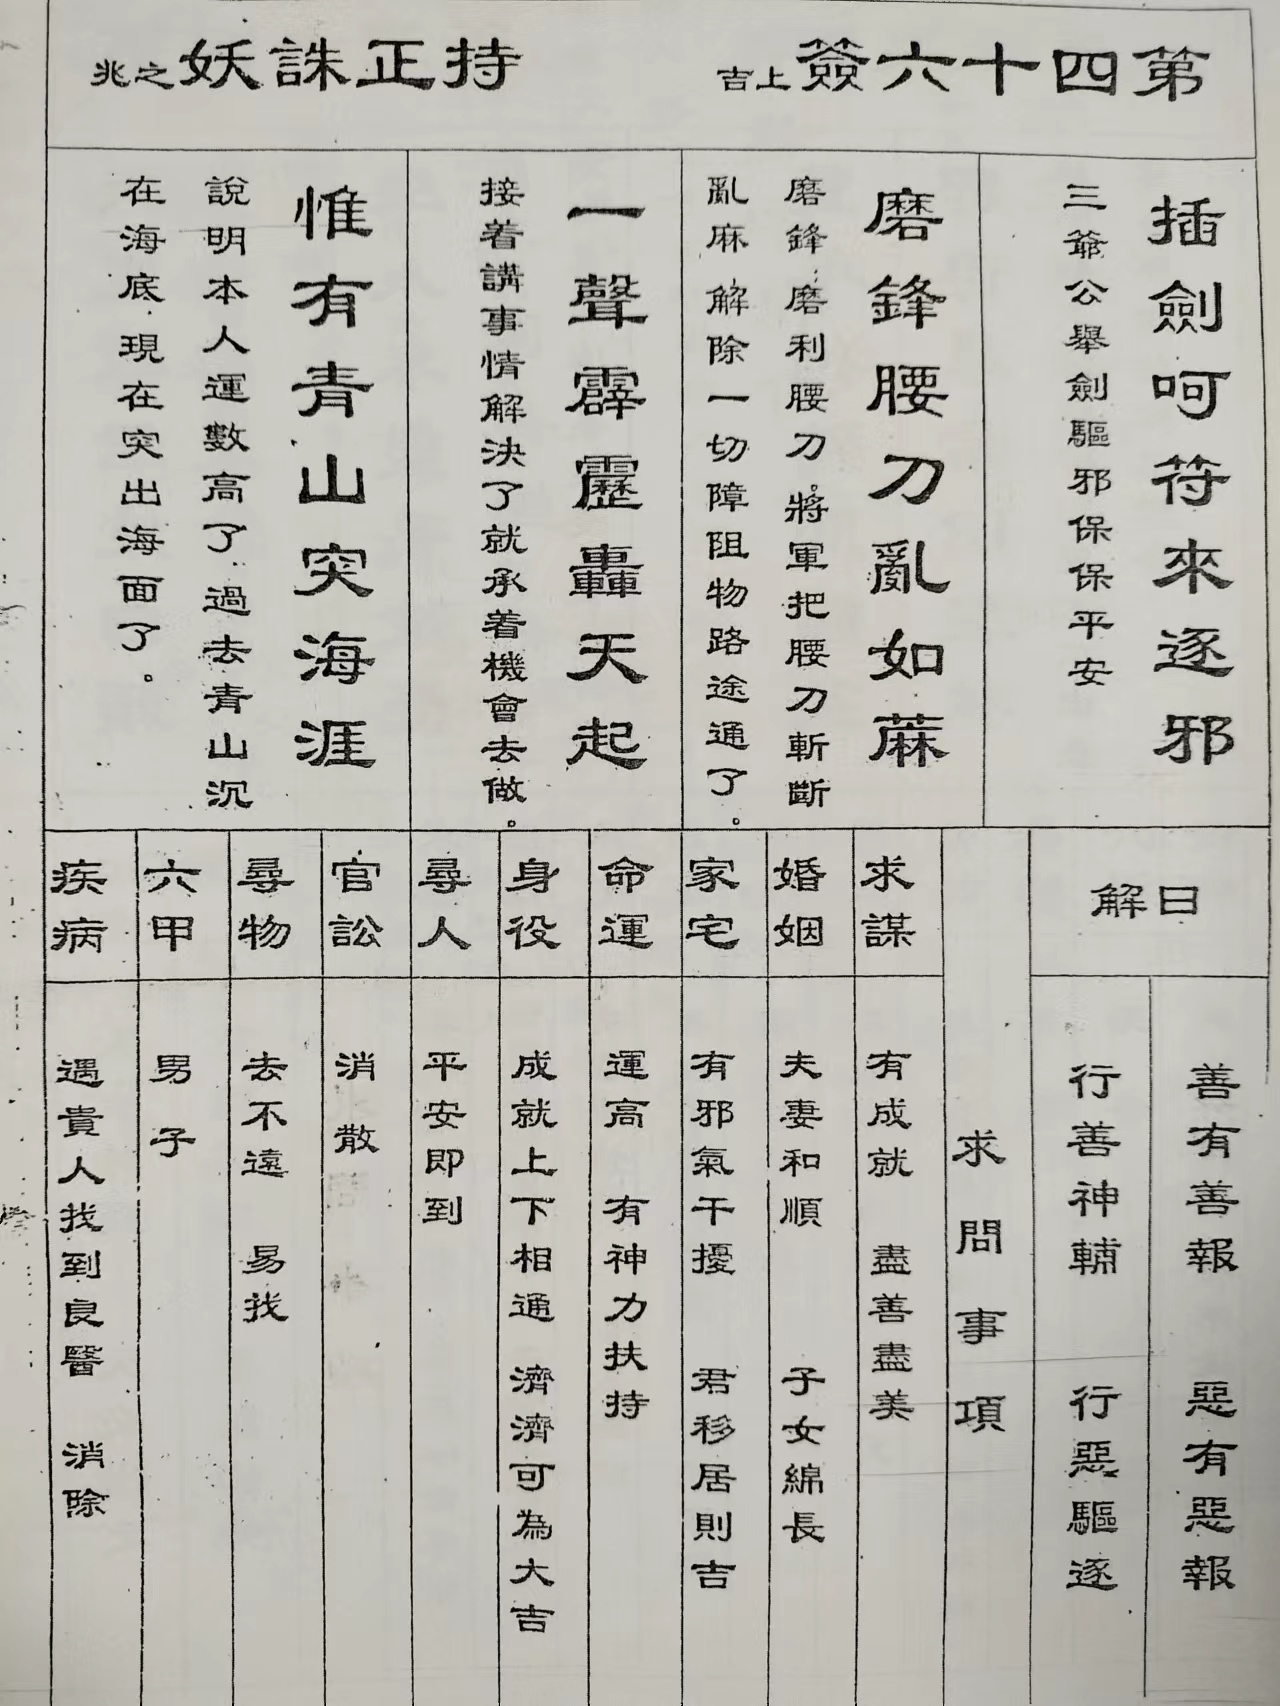 第四十六簽上吉
持正誅妖之兆
插劍呵符來逐邪
三爺公舉劍驅邪保保平安
磨鋒腰刀亂如蔴
磨鋒磨利腰刀將軍把腰刀斬斷
亂麻解除一切障阻物路途通了。
一聲霹靂轟天起
接着講事情解決了就承着機會去做。
惟有青山突海涯
說明本人運數高了.過去青山沉
在海底.現在突出海面了。
解曰
善有善報 惡有惡報
行善神輔 行惡驅逐
求問事項
求謀
有成就 盡善盡美
婚姻
夫妻和順 子女綿長
家宅
有邪氣干擾 君移居則吉
命運
運高 有神力扶持
身役
成就上下相通 濟濟可為大吉
尋人
平安即到
官訟
消散
尋物
去不遠 易找
六甲
男子
疾病
遇貴人找到良醫 消除